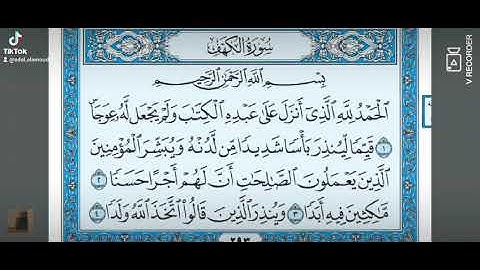 TikTok
@adal.alamoud
V RECORDER
سُورَةُ الكَهْفِ
بِسْمِ اللَّهِ الرَّحْمَٰنِ الرَّحِيمِ
الْحَمْدُ لِلَّهِ الَّذِي أَنزَلَ عَلَىٰ عَبْدِهِ الْكِتَابَ وَلَمْ يَجْعَل لَّهُ عِوَجَا
١ قَيِّمًا لِّيُنذِرَ بَأْسًا شَدِيدًا مِّن لَّدُنْهُ وَيُبَشِّرَ الْمُؤْمِنِينَ
الَّذِينَ يَعْمَلُونَ الصَّالِحَاتِ أَنَّ لَهُمْ أَجْرًا حَسَنًا ٢
مَّاكِثِينَ فِيهِ أَبَدًا ٣ وَيُنذِرَ الَّذِينَ قَالُوا اتَّخَذَ اللَّهُ وَلَدًا ٤
٢٩٣